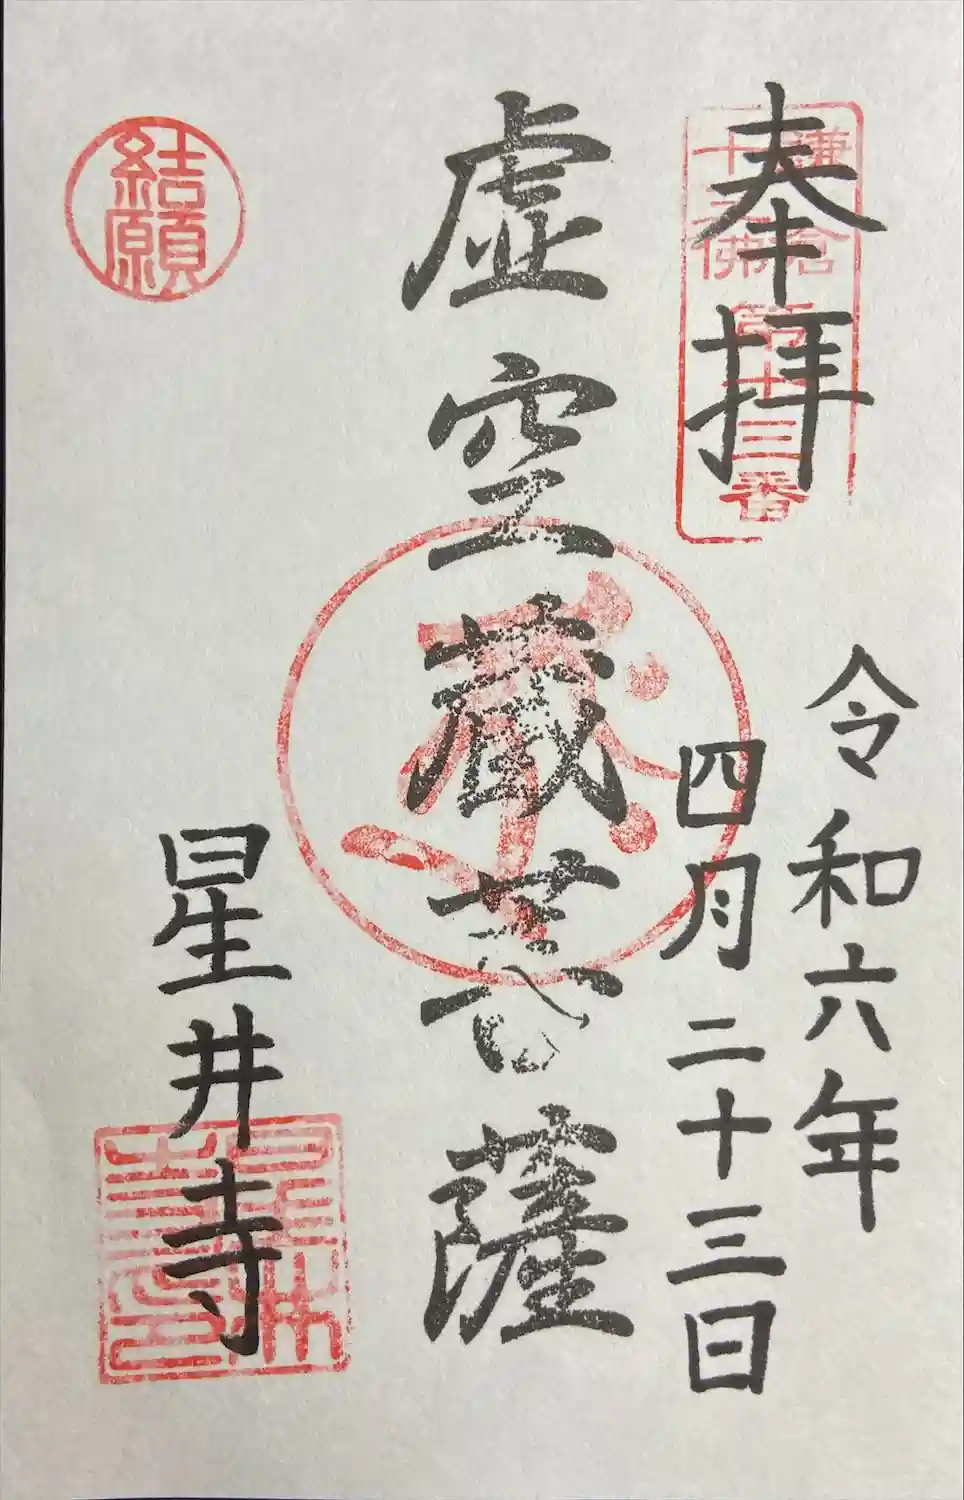 奉拝
鎌倉
十三佛
第十三番
令和六年
四月二十三日
虚空蔵菩薩
結願
星井寺